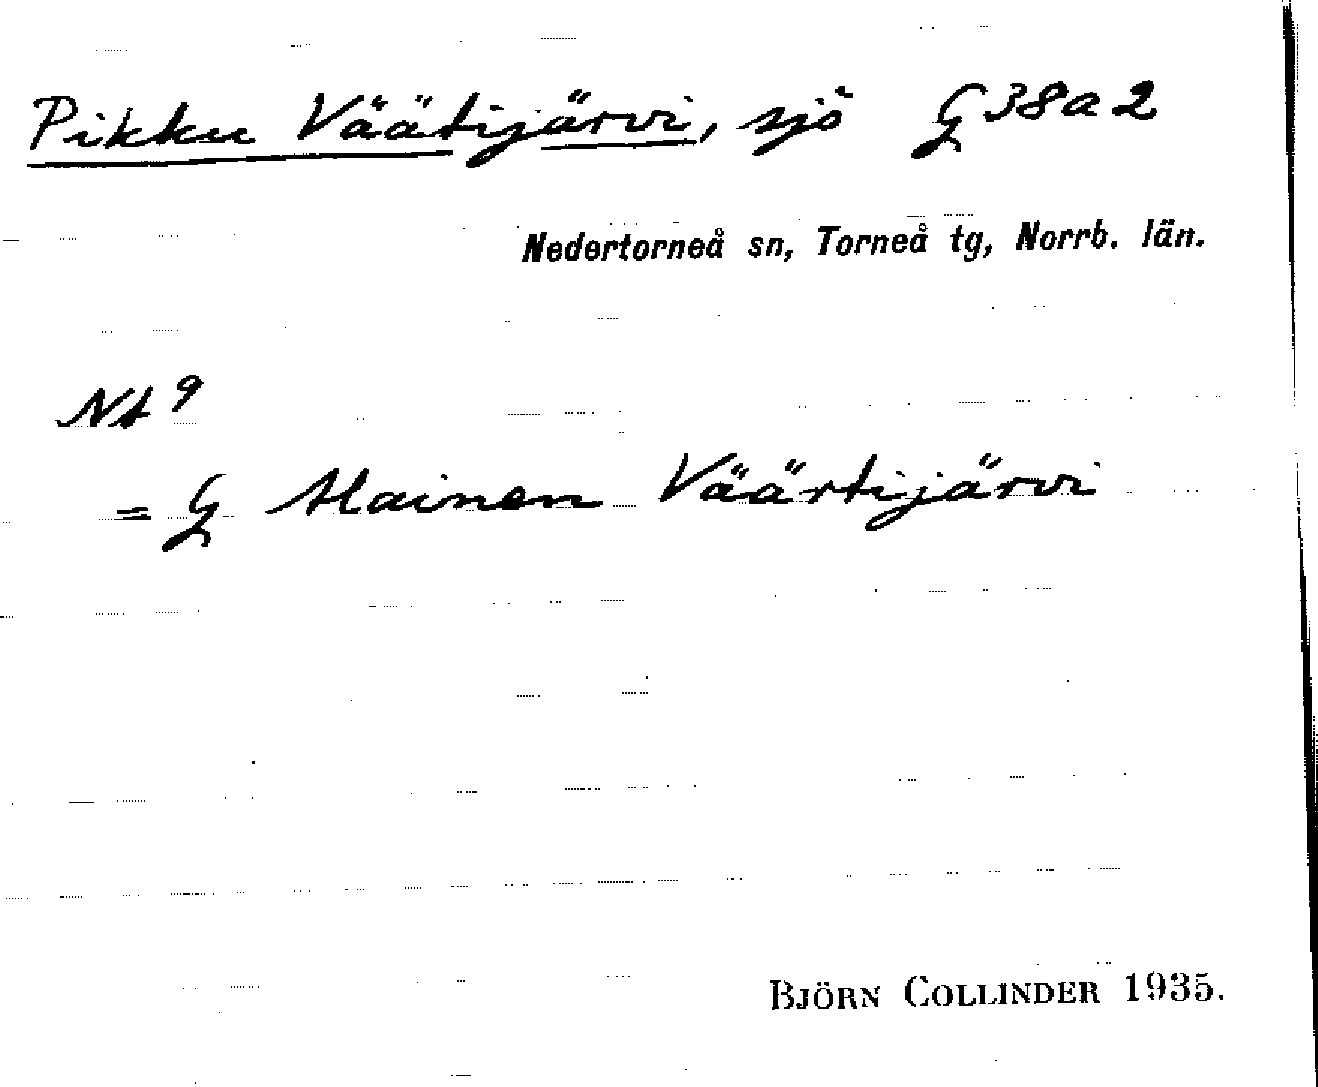 Pikku Väätijärvi, sjö G 38a2
Nedertorneå sn, Torneå tg, Norrb. län.
Nt 9
= G Alainen Väärtijärvi
BJÖRN COLLINDER 1935.